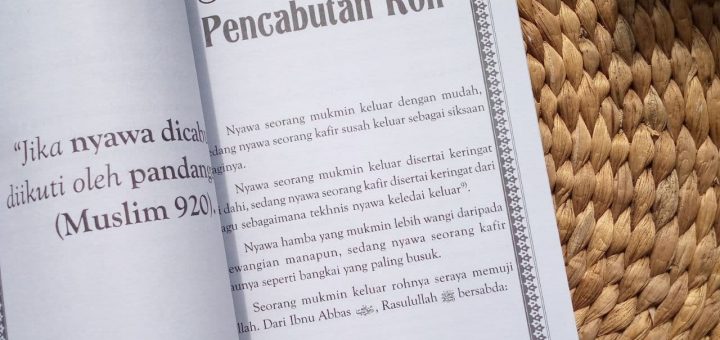 "Jika nyawa dicab
diikuti oleh pandang
(Muslim 920)
Pencabutan Roh
Nyawa seorang mukmin keluar dengan mudah,
edang nyawa seorang kafir susah keluar sebagai siksaan
aginya.
Nyawa seorang mukmin keluar disertai keringat
i dahi, sedang nyawa seorang kafir disertai keringat dari
agu sebagaimana tekhnis nyawa keledai keluar⁹⁾.
Nyawa hamba yang mukmin lebih wangi daripada
ewangian manapun, sedang nyawa seorang kafir
aunya seperti bangkai yang paling busuk.
Seorang mukmin keluar rohnya seraya memuji
llah. Dari Ibnu Abbas, Rasulullah ﷺ bersabda: